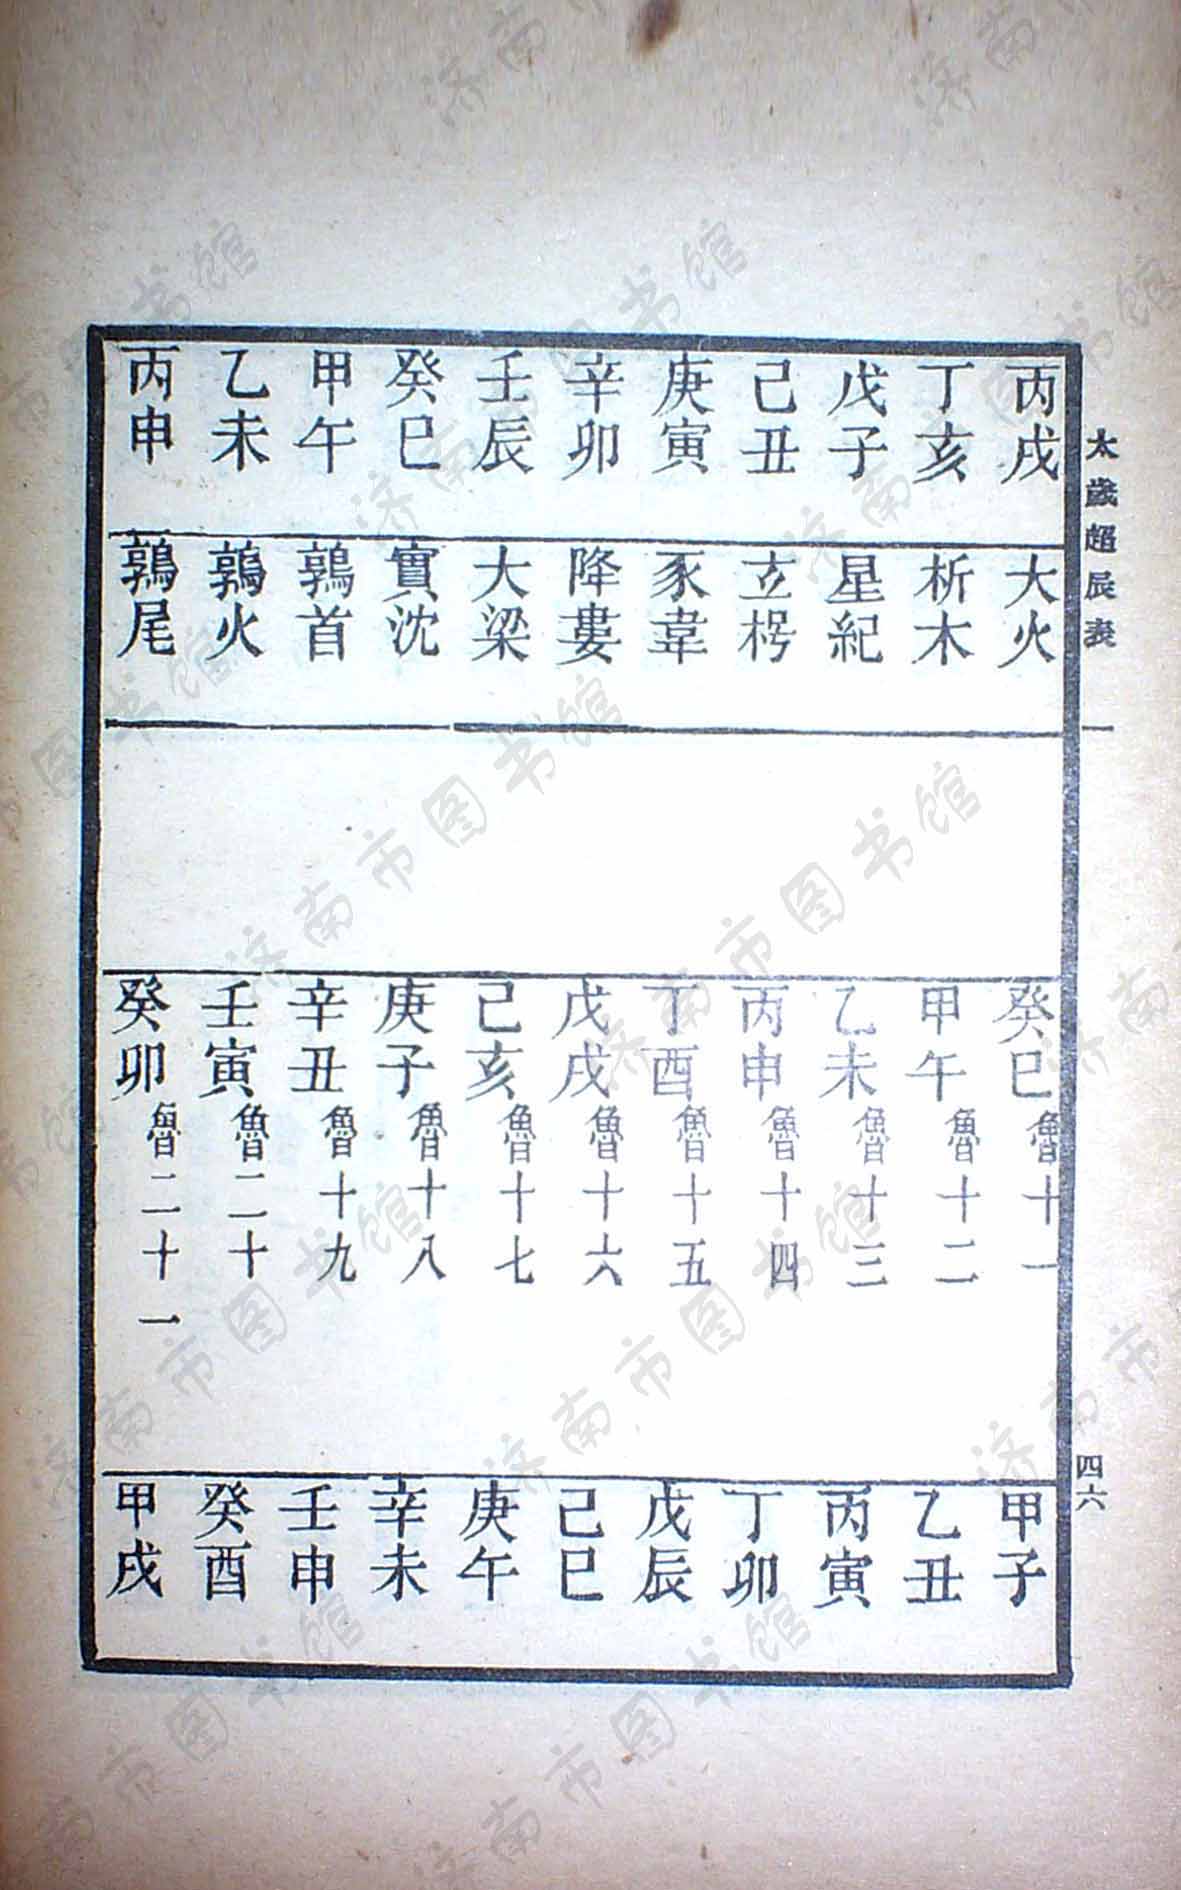 太歲超辰表 一 四六
丙戌 大火 癸巳 魯十一 甲子
丁亥 析木 甲午 魯十二 乙丑
戊子 星紀 乙未 魯十三 丙寅
己丑 立枵 丙申 魯十四 丁卯
庚寅 豕韋 丁酉 魯十五 戊辰
辛卯 降婁 戊戌 魯十六 己巳
壬辰 大梁 己亥 魯十七 庚午
癸巳 實沈 庚子 魯十八 辛未
甲午 鶉首 辛丑 魯十九 壬申
乙未 鶉火 壬寅 魯二十 癸酉
丙申 鶉尾 癸卯 魯二十一 甲戌
济南市图书馆